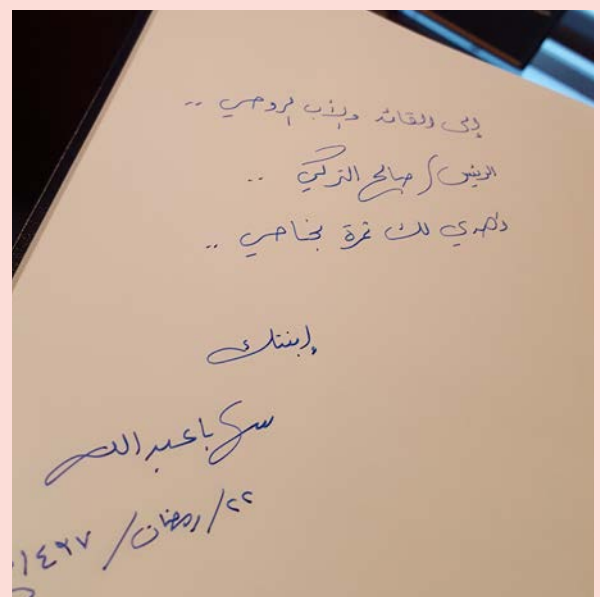 إلى القائد والأب الروحي ..
الريس / صالح التركي ..
أهدي لك ثمرة نجاحي ..
إبنتك
باعبدالله
٢٢ / رمضان / ١٤٣٧